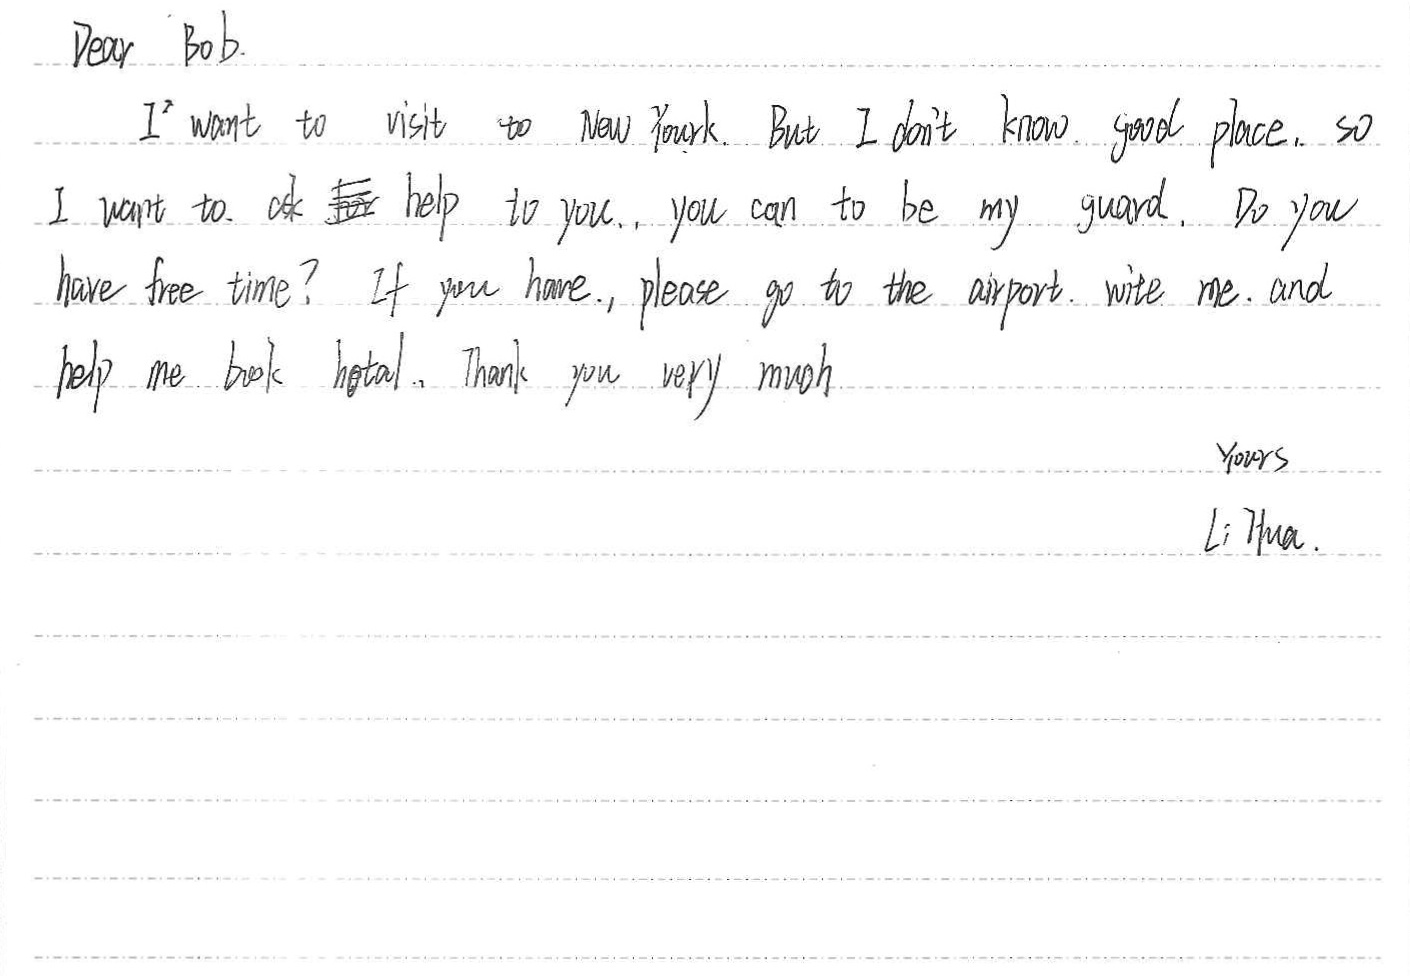 Dear Bob.
I want to visit to New Yourk. But I don't know good place. so
I want to ask help to you., you can to be my guard. Do you
have free time? If you have., please go to the airport. wite me. and
help me book hotal. Thank you very much.
Yours
Li Hua.